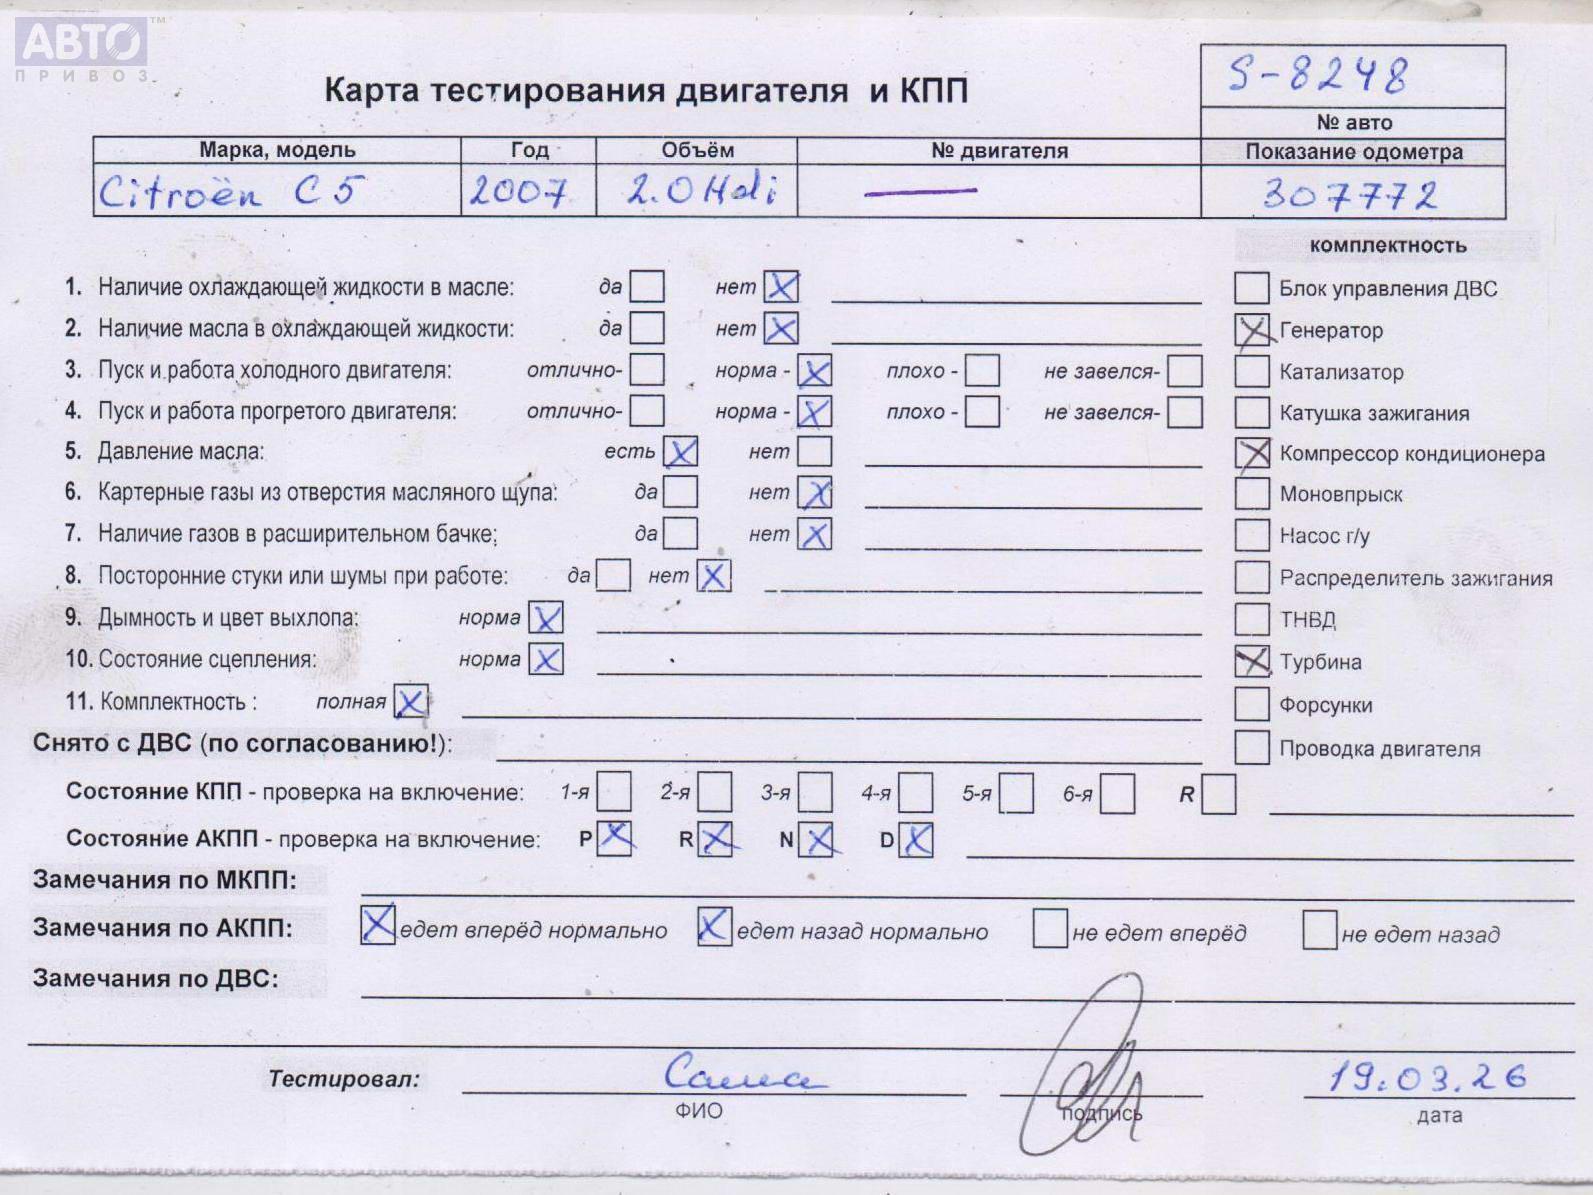 АВТО™
ПРИВОЗ
Карта тестирования двигателя и КПП
S-8248
№ авто
Марка, модель Год Объём № двигателя Показание одометра
Citroën C5 2007 2.0 Hdi — 307772
комплектность
1. Наличие охлаждающей жидкости в масле: да нет X
Блок управления ДВС
2. Наличие масла в охлаждающей жидкости: да нет X
X Генератор
3. Пуск и работа холодного двигателя: отлично- норма - X плохо - не завелся-
Катализатор
4. Пуск и работа прогретого двигателя: отлично- норма - X плохо - не завелся-
Катушка зажигания
5. Давление масла: есть X нет
X Компрессор кондиционера
6. Картерные газы из отверстия масляного щупа: да нет X
Моновпрыск
7. Наличие газов в расширительном бачке; да нет X
Насос г/у
8. Посторонние стуки или шумы при работе: да нет X
Распределитель зажигания
9. Дымность и цвет выхлопа: норма X
ТНВД
10. Состояние сцепления: норма X
X Турбина
11. Комплектность : полная X
Форсунки
Снято с ДВС (по согласованию!):
Проводка двигателя
Состояние КПП - проверка на включение: 1-я 2-я 3-я 4-я 5-я 6-я R
Состояние АКПП - проверка на включение: P X R X N X D X
Замечания по МКПП:
Замечания по АКПП: X едет вперёд нормально X едет назад нормально не едет вперёд не едет назад
Замечания по ДВС:
Тестировал: Саша 19.03.26
ФИО подпись дата